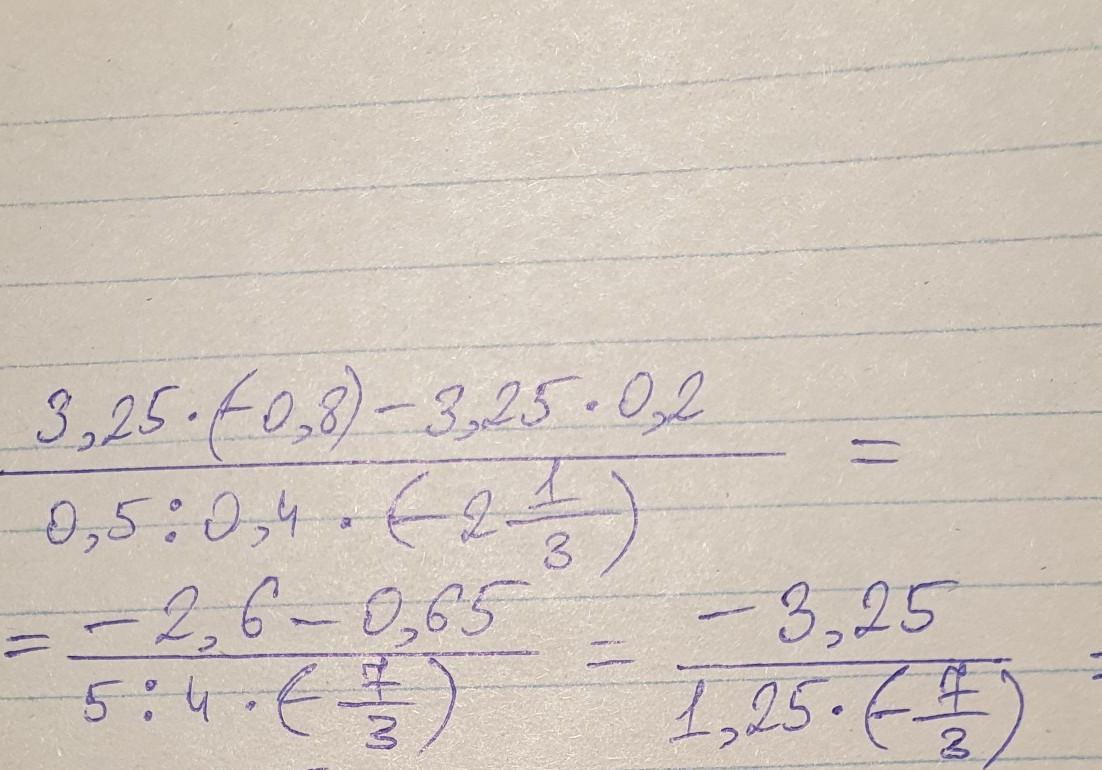 3,25·(-0,8)-3,25·0,2 =
0,5:0,4·(-2 1/3)
= -2,6-0,65 = -3,25 =
5:4·(-7/3) 1,25·(-7/3)